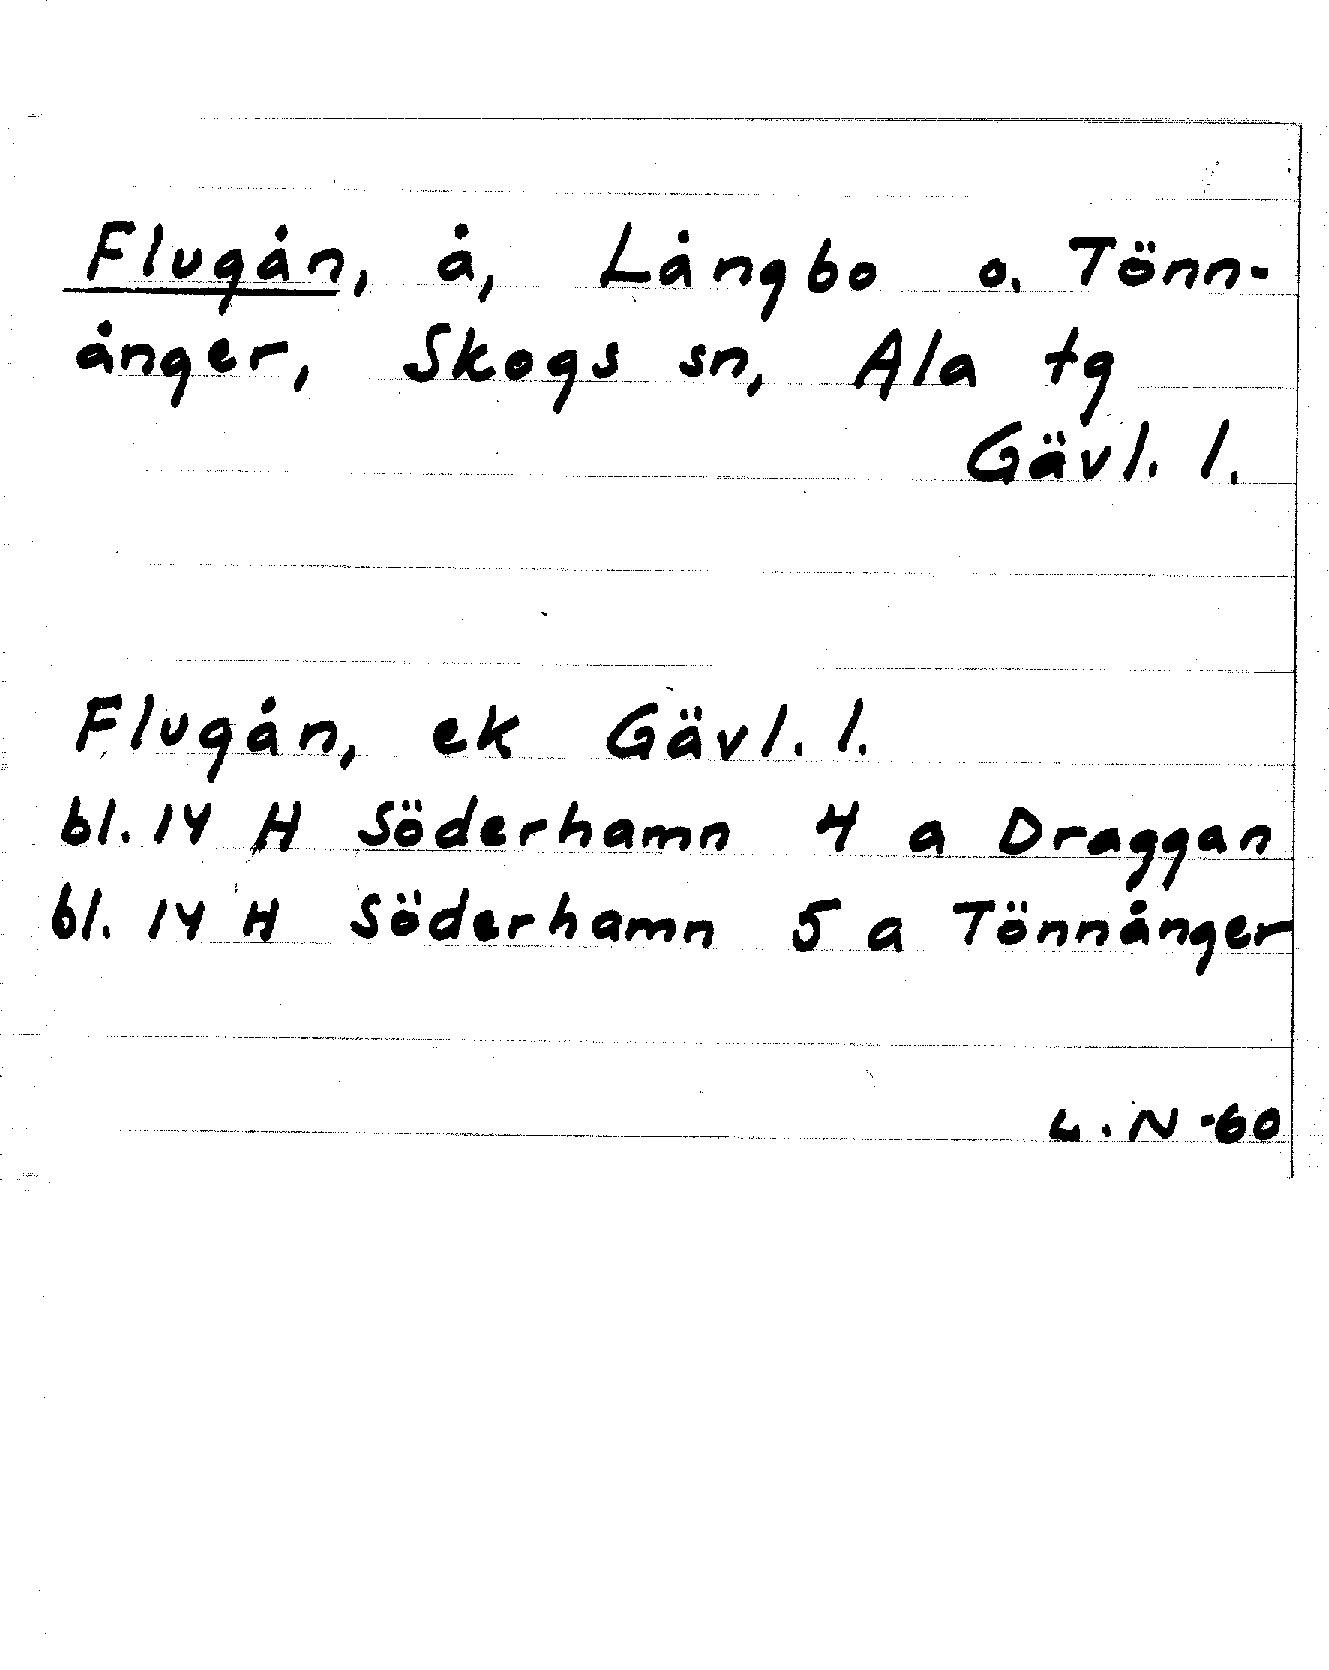 Flugån, å, Långbo o. Tönn-
ånger, Skogs sn, Ala tg
Gävl. l.
Flugån, ek Gävl. l.
bl. 14 H Söderhamn 4 a Draggan
bl. 14 H Söderhamn 5 a Tönnånger
L. N -60